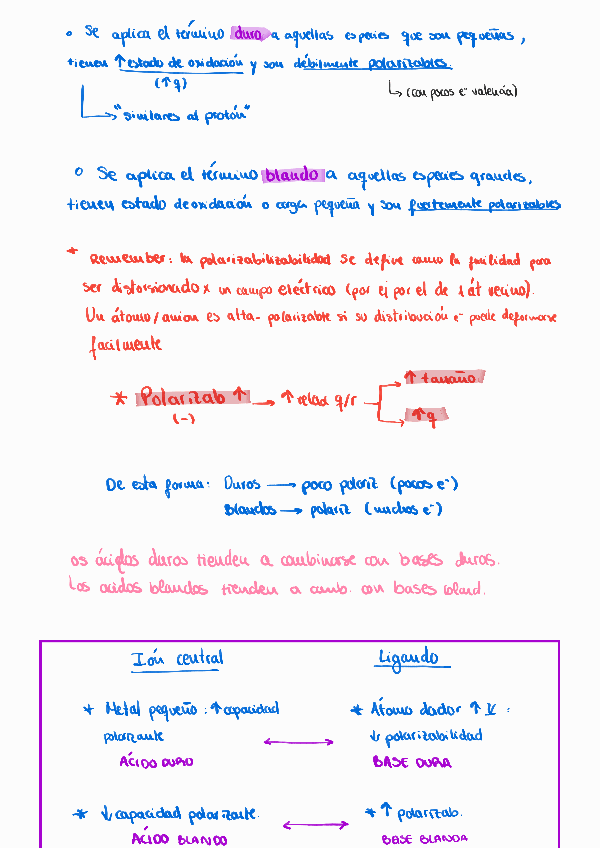 ° Se aplica el término duro a aquellas especies que son pequeñas,
tienen ↑ estado de oxidación y son débilmente polarizables.
(↑ q)
↳ (con pocos e⁻ valencia)
↳ "similares al protón"
° Se aplica el término blando a aquellas especies grandes,
tienen estado de oxidación o carga pequeña y son fuertemente polarizables
* Remember: la polarizabilizabilidad se define como la facilidad para
ser distorsionado x un campo eléctrico (por ej por el de 1 át vecino).
Un átomo/anion es alta- polarizable si su distribución e⁻ puede deformarse
facilmente
* Polarizab ↑ → ↑ relac q/r
(-)
↑ tamaño
↑ q
De esta forma: Duros → poco polariz (pocos e⁻)
Blandos → polariz (muchos e⁻)
os ácidos duros tienden a combinarse con bases duros.
Los acidos blandos tienden a comb. con bases bland.
Ión central Ligando
* Metal pequeño: ↑ capacidad * Átomo dador ↑ X :
polarizante ↔ ↓ polarizabilidad
ÁCIDO DURO BASE DURA
* ↓ capacidad polarizante. ↔ * ↑ polarizab.
ÁCIDO BLANDO BASE BLANDA